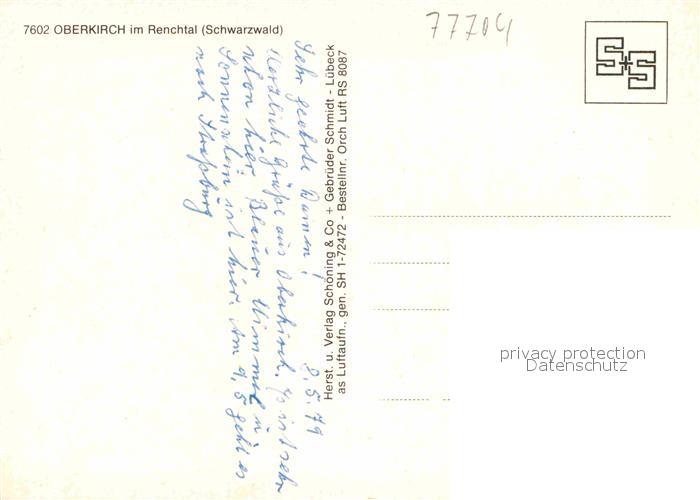 7602 OBERKIRCH im Renchtal (Schwarzwald)
77704
S+S
Herst. u. Verlag Schöning & Co + Gebrüder Schmidt - Lübeck
as Luftaufn., gen. SH 1-72472 - Bestellnr. Orch Luft RS 8087
8.5.79
Sehr geehrte Damen!
Herzliche Grüße aus Oberkirch. Es ist sehr
schön hier. Blauer Himmel u
Sonnenschein ist hier. Am 9.5 geht es
nach Straßburg
privacy protection
Datenschutz